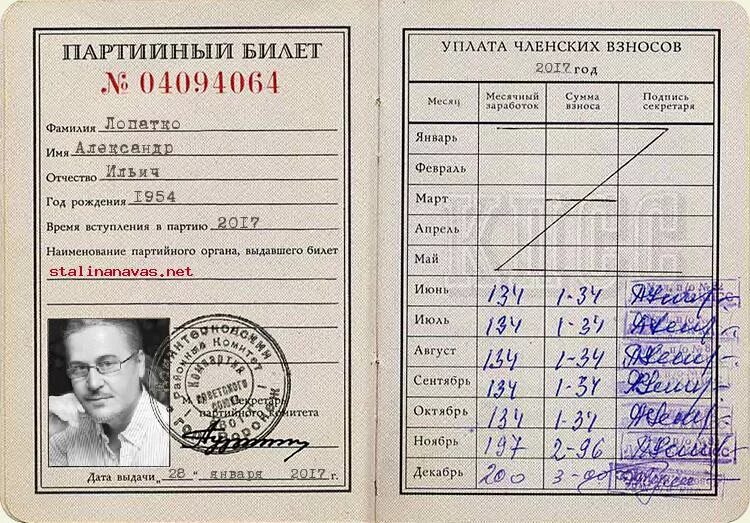 ПАРТИЙНЫЙ БИЛЕТ
№ 04094064
Фамилия Лопатко
Имя Александр
Отчество Ильич
Год рождения 1954
Время вступления в партию 2017
Наименование партийного органа, выдавшего билет
stalinanavas.net
Районный Комитет
Компартия
Советского
Союза
М
Секретарь
партийного комитета
Дата выдачи „28“ января 2017 г.
УПЛАТА ЧЛЕНСКИХ ВЗНОСОВ
2017 год
Месяц Месячный заработок Сумма взноса Подпись секретаря
КПСС
Январь
Февраль
Март
Апрель
Май
Июнь 134 1-34
Июль 134 1-34
Август 134 1-34
Сентябрь 134 1-34
Октябрь 134 1-34
Ноябрь 197 2-96
Декабрь 200